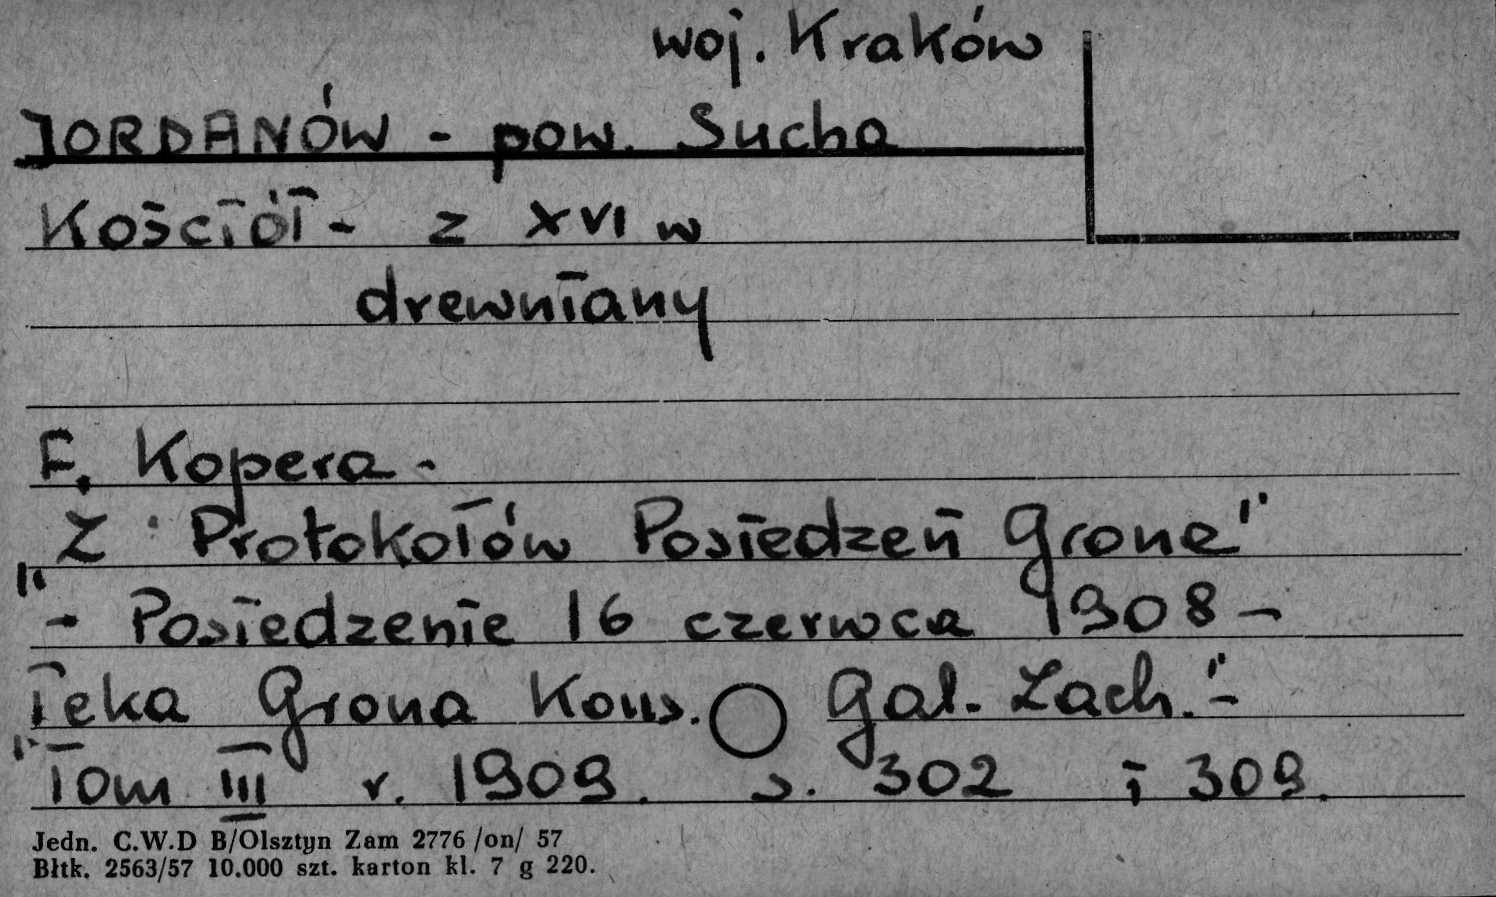 woj. Kraków
JORDANÓW - pow. Sucha
Kościół - z XVI w
drewniany
F. Kopera -
Z Protokołów Posiedzeń Grona"
"- Posiedzenie 16 czerwca 1908 -
Teka Grona Kons. Gal. Zach." -
"Tom III r. 1909. s. 302 i 309.
Jedn. C.W.D B/Olsztyn Zam 2776 /on/ 57
Błtk. 2563/57 10.000 szt. karton kl. 7 g 220.